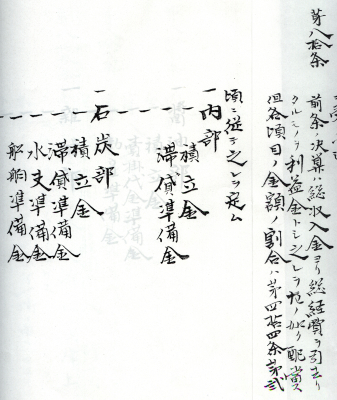 第八拾条
前条ノ決算ハ総収入金ヨリ総経費ヲ引去リ
タルモノヲ利益金トシ之レヲ左ノ如ク配當ス
但各項目ノ金額ノ割合ハ第四拾四条第弐
項ニ従テ之レヲ定ム
一内部
積立金
滞貸準備金
一石炭部
積立金
滞貸準備金
水支準備金
船舶準備金